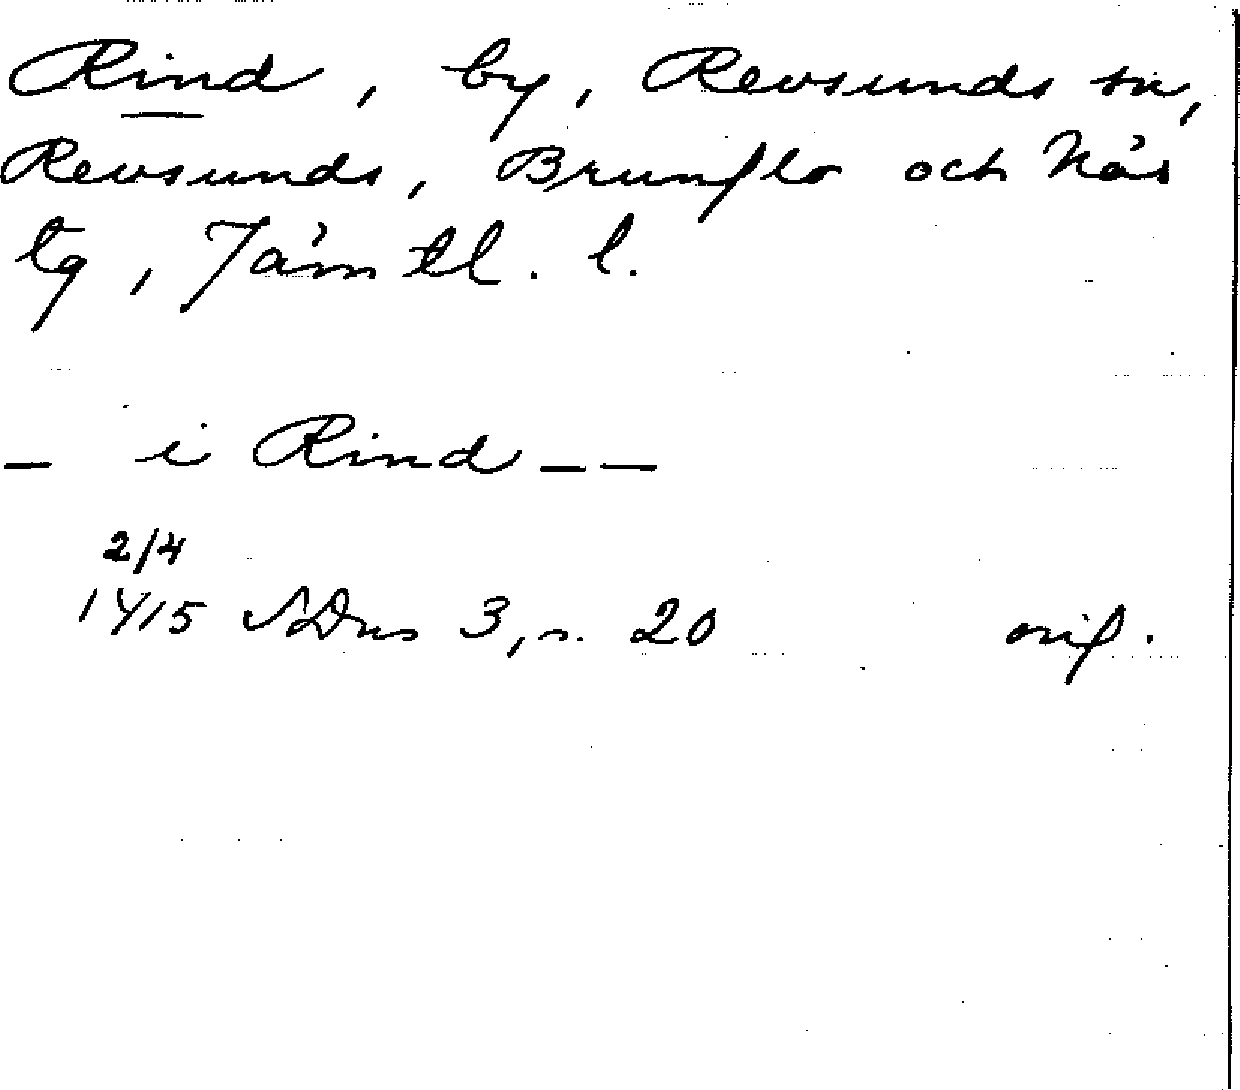 Rind, by, Revsunds sn,
Revsunds, Brunflo och Näs
tg, Jämtl. l.
– i Rind – –
2/4
1415 SDns 3, s. 20 orig.